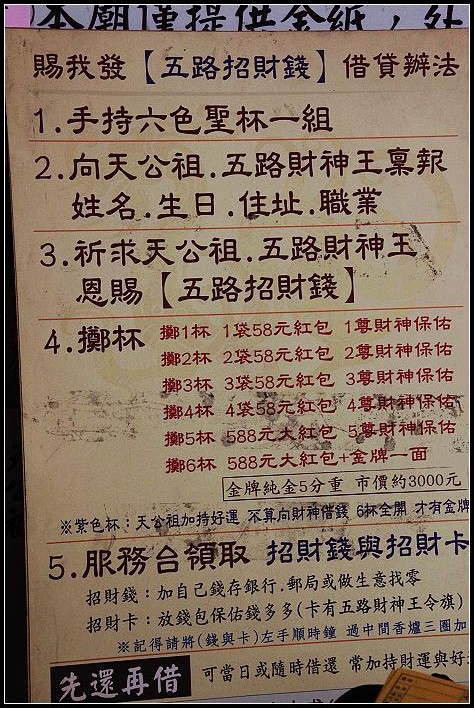 本廟僅提供金紙，處
賜我發【五路招財錢】借貸辦法
1.手持六色聖杯一組
2.向天公祖.五路財神王稟報
姓名.生日.住址.職業
3.祈求天公祖.五路財神王
恩賜【五路招財錢】
4.擲杯
擲1杯 1袋58元紅包 1尊財神保佑
擲2杯 2袋58元紅包 2尊財神保佑
擲3杯 3袋58元紅包 3尊財神保佑
擲4杯 4袋58元紅包 4尊財神保佑
擲5杯 588元大紅包 5尊財神保佑
擲6杯 588元大紅包+金牌一面
金牌純金5分重 市價約3000元
※紫色杯：天公祖加持好運 不算向財神借錢 6杯全開 才有金牌
5.服務台領取 招財錢與招財卡
招財錢：加自己錢存銀行.郵局或做生意找零
招財卡：放錢包保佑錢多多(卡有五路財神王令旗)
※記得請將(錢與卡)左手順時鐘 過中間香爐三圈加
先還再借 可當日或隨時借還 常加持財運與好